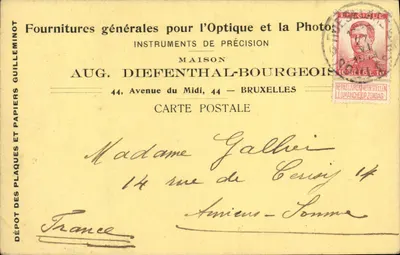 Fournitures générales pour l'Optique et la Photo
INSTRUMENTS DE PRÉCISION
MAISON
AUG. DIEFENTHAL-BOURGEOIS
44, Avenue du Midi, 44 — BRUXELLES
CARTE POSTALE
DÉPOT DES PLAQUES ET PAPIERS GUILLEMINOT
Madame Gallier
14 rue de Cerisy 14
Amiens-Somme
France